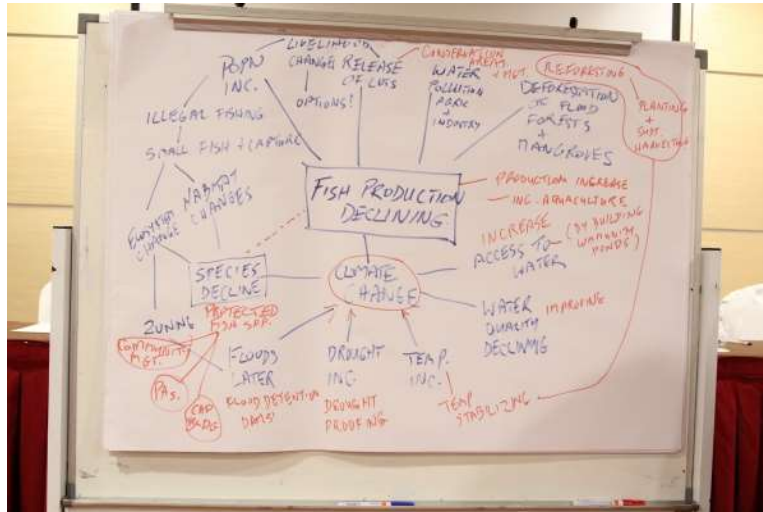 POPN
INC.
LIVELIHOOD
CHANGES
OPTIONS?
RELEASE
OF
CONSERVATION
AREAS
+ MGT.
WATER
POLLUTION
AGRIC +
INDUSTRY
REFORESTING
PLANTING
+
SUST.
HARVESTING
DEFORESTATION
OF FLOOD
FORESTS
+
MANGROVES
ILLEGAL FISHING
SMALL FISH CAPTURE
HABITAT
CHANGES
ECOSYSTEM
CHANGE
FISH PRODUCTION
DECLINING
PRODUCTION INCREASE
INC. AQUACULTURE
INCREASE
ACCESS TO
WATER
(BY BUILDING
PONDS)
SPECIES
DECLINE
CLIMATE
CHANGE
WATER
QUALITY
DECLINING
IMPROVING
PROTECTED
FISH SPP.
COMMUNITY
MGT.
PAs.
CAP
BLDG
FLOODS
LATER
FLOOD DETENTION
DAMS
DROUGHT
ING
DROUGHT
PROOFING
TEMP.
INC.
TEMP
STABILIZING